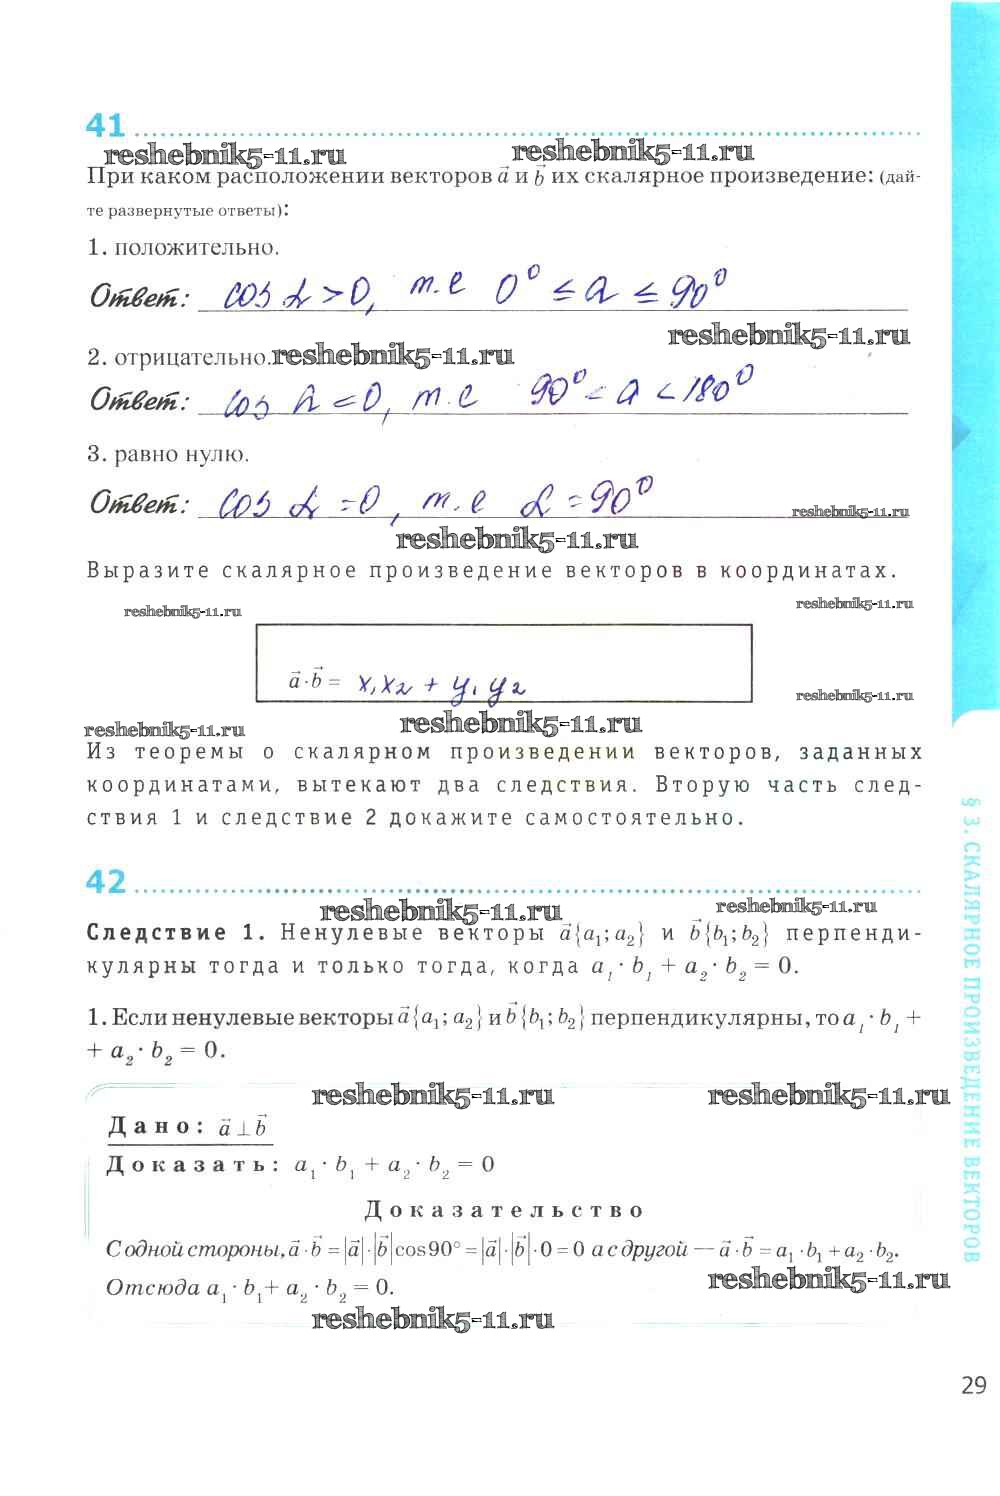 41
reshebnik5-11.ru reshebnik5-11.ru
При каком расположении векторов a⃗ и b⃗ их скалярное произведение: (дай-
те развернутые ответы):
1. положительно.
Ответ: cos α > 0, т.е 0° ≤ α ≤ 90°
reshebnik5-11.ru
2. отрицательно. reshebnik5-11.ru
Ответ: cos α < 0, т.е 90° < α < 180°
3. равно нулю.
Ответ: cos α = 0, т.е α = 90°
reshebnik5-11.ru
reshebnik5-11.ru
Выразите скалярное произведение векторов в координатах.
reshebnik5-11.ru reshebnik5-11.ru
a⃗·b⃗ = x₁x₂ + y₁y₂
reshebnik5-11.ru
reshebnik5-11.ru reshebnik5-11.ru
Из теоремы о скалярном произведении векторов, заданных
координатами, вытекают два следствия. Вторую часть след-
ствия 1 и следствие 2 докажите самостоятельно.
42
reshebnik5-11.ru reshebnik5-11.ru
Следствие 1. Ненулевые векторы a⃗{a₁; a₂} и b⃗{b₁; b₂} перпенди-
кулярны тогда и только тогда, когда a₁ · b₁ + a₂ · b₂ = 0.
1. Если ненулевые векторы a⃗{a₁; a₂} и b⃗{b₁; b₂} перпендикулярны, то a₁ · b₁ +
+ a₂ · b₂ = 0.
reshebnik5-11.ru reshebnik5-11.ru
Дано: a⃗ ⊥ b⃗
Доказать: a₁ · b₁ + a₂ · b₂ = 0
Доказательство
С одной стороны, a⃗ · b⃗ = |a⃗| · |b⃗| cos 90° = |a⃗| · |b⃗| · 0 = 0 а с другой — a⃗ · b⃗ = a₁ · b₁ + a₂ · b₂.
Отсюда a₁ · b₁ + a₂ · b₂ = 0.
reshebnik5-11.ru
reshebnik5-11.ru
§ 3. СКАЛЯРНОЕ ПРОИЗВЕДЕНИЕ ВЕКТОРОВ
29